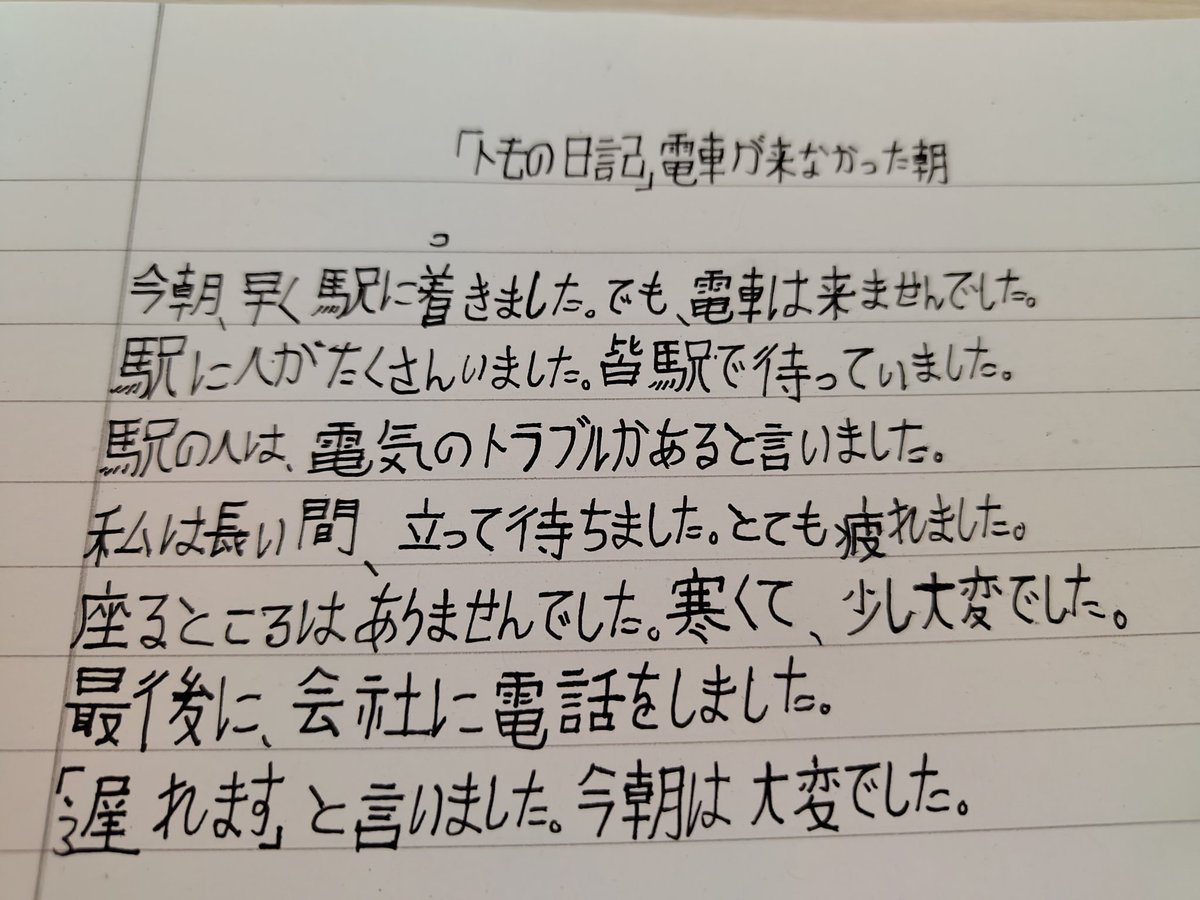 「トモの日記」電車が来なかった朝
今朝、早く駅に着きました。でも、電車は来ませんでした。
駅に人がたくさんいました。皆駅で待っていました。
駅の人は、電気のトラブルがあると言いました。
私は長い間、立って待ちました。とても疲れました。
座るところはありませんでした。寒くて、少し大変でした。
最後に、会社に電話をしました。
「遅れます」と言いました。今朝は大変でした。